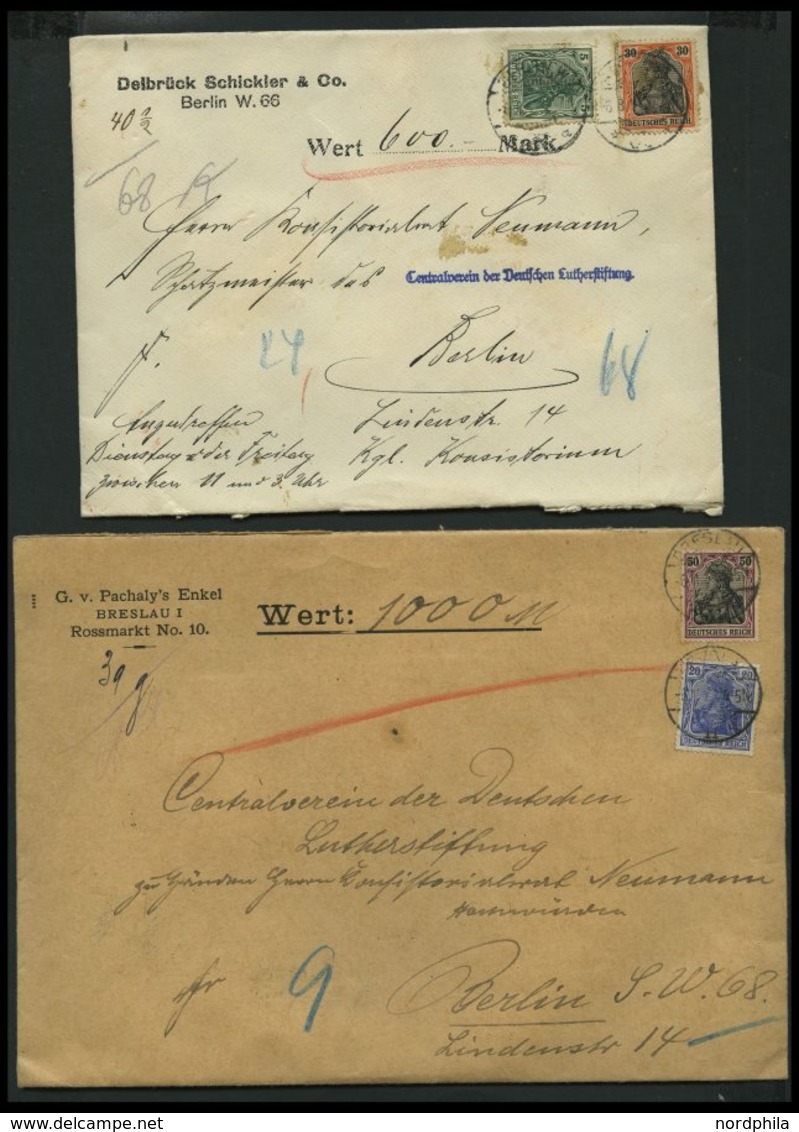 Delbrück Schickler & Co.
Berlin W. 66
40 ½
5 5
30 30
DEUTSCHES REICH
Wert 600.- Mark.
68
Herrn Konsistorialrat Neumann,
Schatzmeister des Centralverein der Deutschen Lutherstiftung.
24
68
Berlin
Anzutreffen
Lindenstr. 14
Dienstag oder Freitag
Kgl. Konsistorium
zwischen 11 und 3 Uhr
G. v. Pachaly's Enkel
BRESLAU I
Rossmarkt No. 10.
Wert: 1000 M
BRESLAU
50 50
DEUTSCHES REICH
20 20
DEUTSCHES REICH
39 g
Centralverein der Deutschen
Lutherstiftung
zu Händen Herrn Konsistorialrat Neumann
Hochwürden
fr
9
Berlin S.W. 68.
Lindenstr 14
www.delcampe.net
nordphila